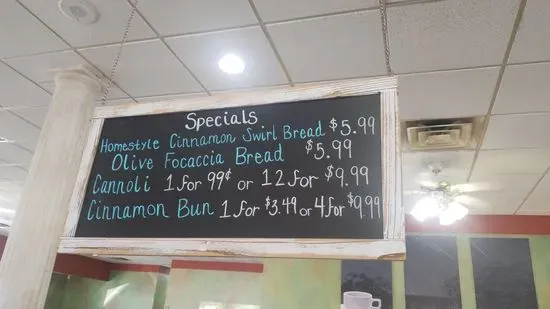 Specials
Homestyle Cinnamon Swirl Bread $5.99
Olive Focaccia Bread $5.99
Cannoli 1 for 99¢ or 12 for $9.99
Cinnamon Bun 1 for $3.49 or 4 for $9.99